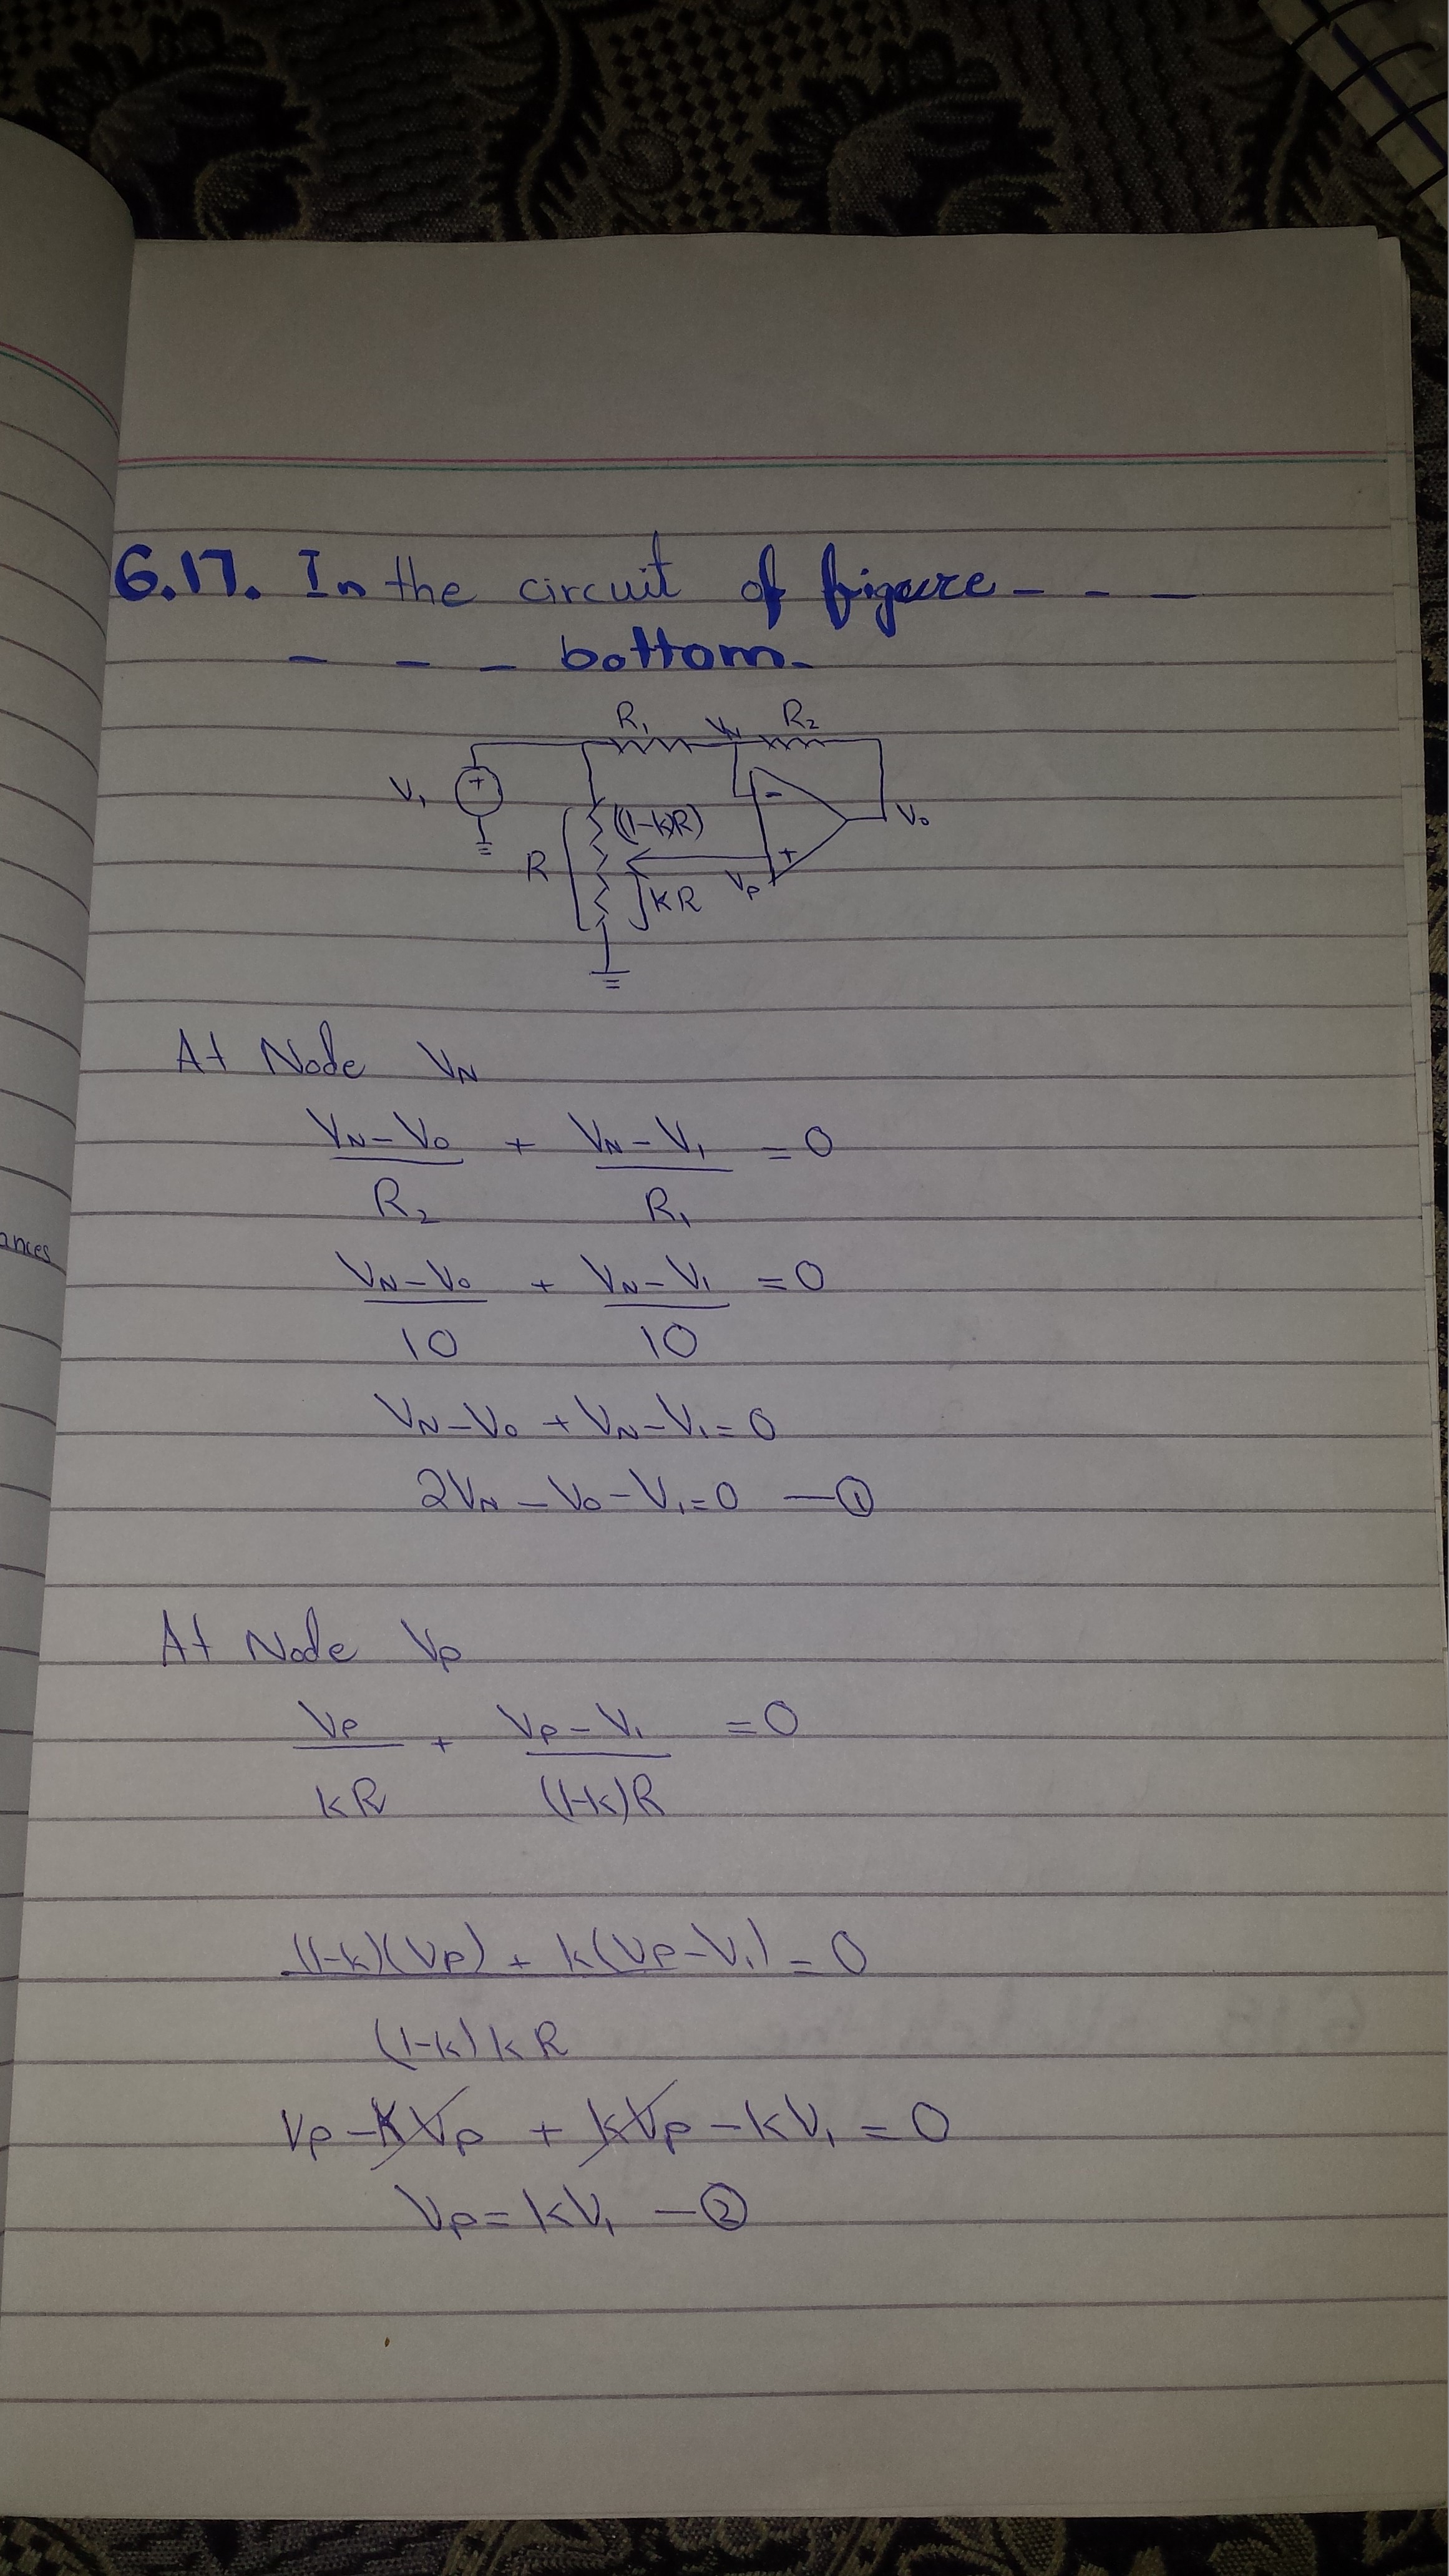 6.17. In the circuit of figure - - -
- - - bottom.
R₁ V_N R₂
V₁ + - V₀
((1-k)R)
R + V_P
KR
At Node V_N
(V_N - V₀)/R₂ + (V_N - V₁)/R₁ = 0
(V_N - V₀)/10 + (V_N - V₁)/10 = 0
V_N - V₀ + V_N - V₁ = 0
2V_N - V₀ - V₁ = 0 — ①
At Node V_P
V_P/kR + (V_P - V₁)/(1-k)R = 0
((1-k)(V_P) + k(V_P - V₁))/(1-k)kR = 0
V_P - kV_P + kV_P - kV₁ = 0
V_P = kV₁ — ②
ances